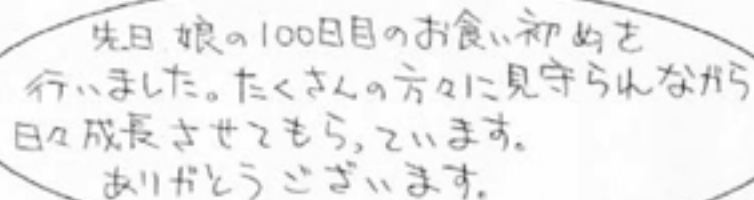 先日 娘の100日目のお食い初めを
行いました。たくさんの方々に見守られながら
日々成長させてもらっています。
ありがとうございます。